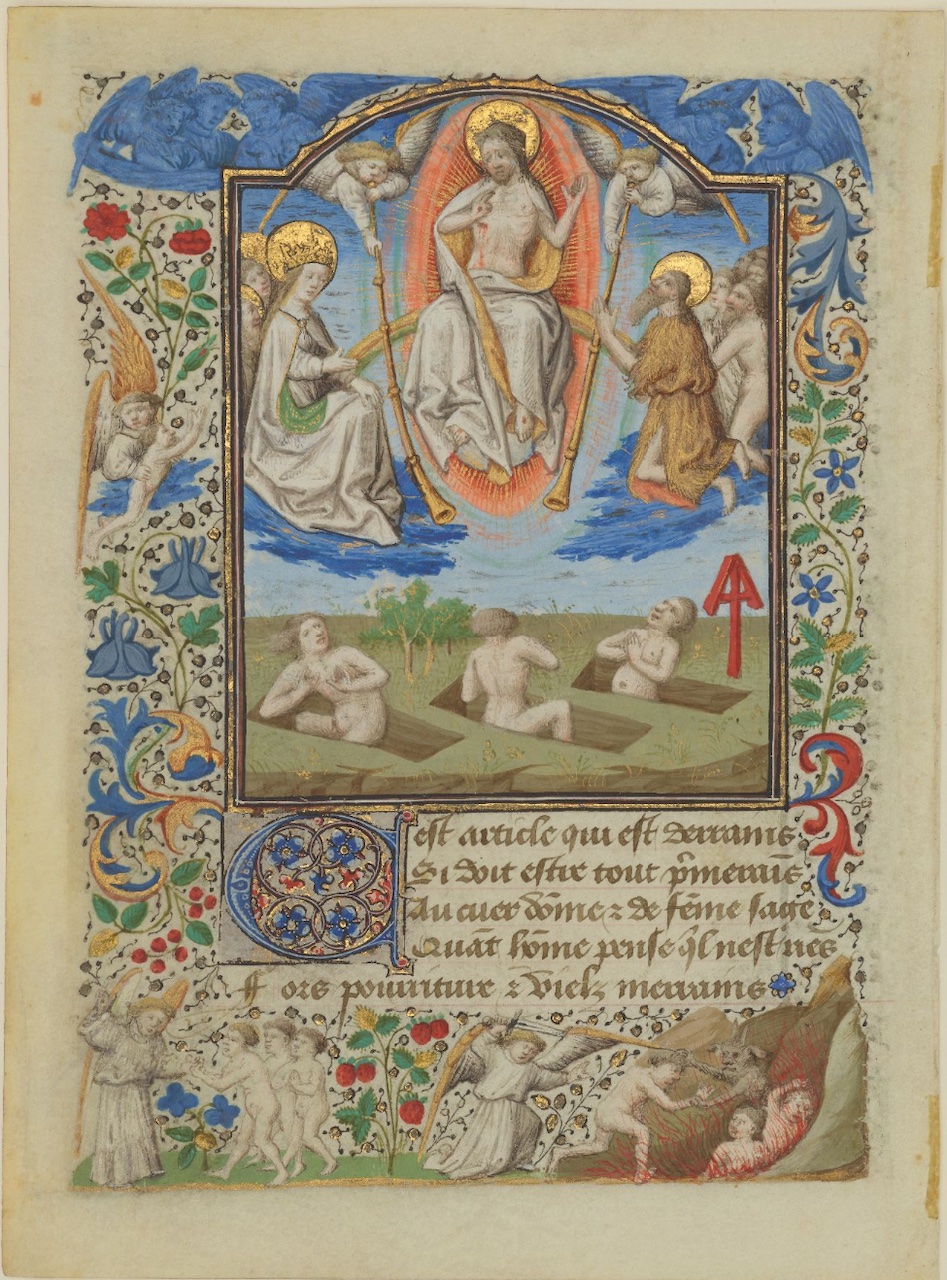 Cest article qui est derranis
Si doit estre tout p̄merain̄s
Au cuer dōme ⁊ de fēme sage
Quāt hōme pense q̄l nest
Fors pourriture ⁊ vielz merranis